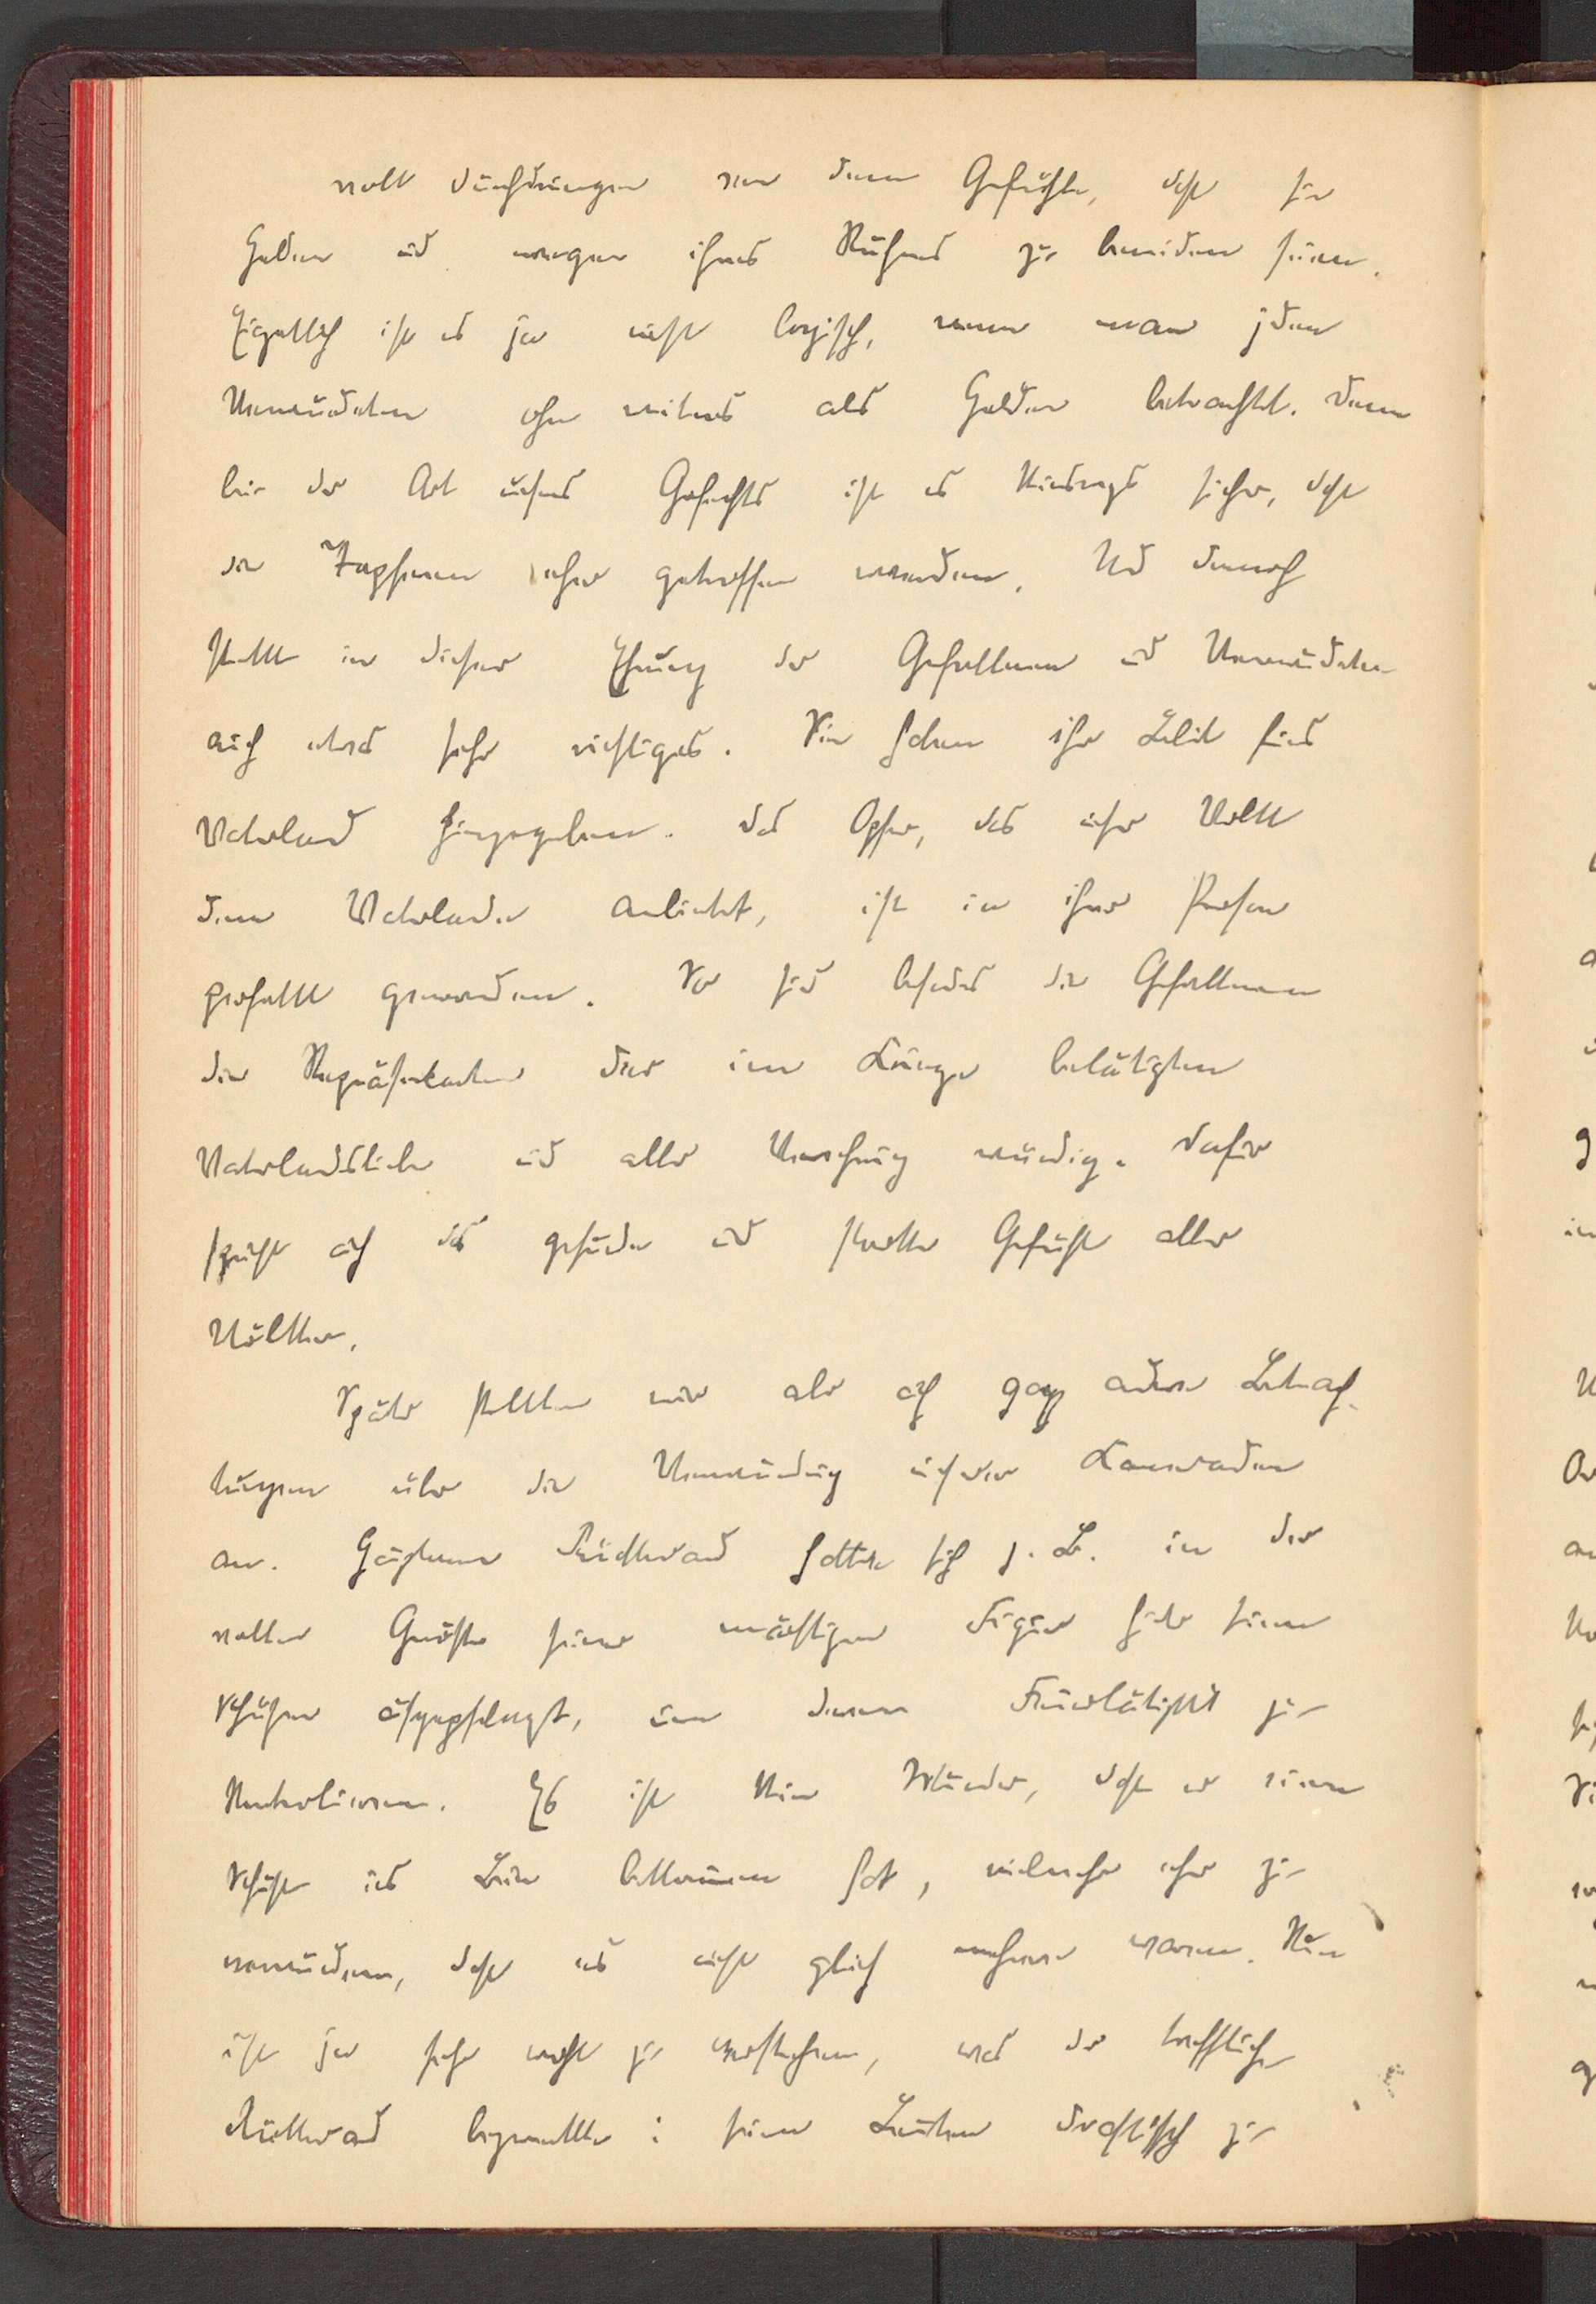 voll durchdrungen von dem Gefühle, daß sie
Helden und wegen ihres Ruhmes zu beneiden seien.
Eigentlich ist es ja nicht logisch, wenn man jeden
Verwundeten ohne weiteres als Helden betrachtet. Denn
bei der Art unseres Gefechts ist es keineswegs sicher, daß
die Tapferen eher getroffen werden. Und dennoch
steckt in dieser Ehrung der Gefallenen und Verwundeten
auch etwas sehr richtiges. Sie haben ihr Lebit fürs
Vaterland hingegeben. Das Opfer, das unser Volk
dem Vaterlande anbietet, ist in ihrer Person
gefallt geworden. So sind besonders die Gefallenen
die Repräsentanten der im Kriege betätigten
Vaterlandsliebe und aller Verehrung würdig. Dafür
spricht auch das gesunde und starke Gefühl aller
Völker.
Später stellten wir aber auch ganz andere Betrach-
tungen über die Verwundung unserer Kameraden
an. Hauptmann Rückward hatte sich z. B. in der
vollen Größe seiner mächtigen Figur hinter seinen
Schützen aufgepflanzt, um deren Feuertätigkeit zu
kontrolieren. Es ist kein Wunder, daß er einen
Schuß ins Bein bekommen hat, vielmehr eher zu
verwundern, daß es nicht gleich mehrere waren. Nun
ist ja sehr wohl zu verstehen, was der treffliche
Rückward bezweckte: seinen Leuten drastisch zu